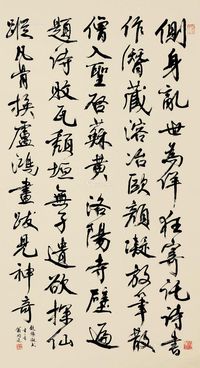 側身亂世為佯狂寄託詩書
作潛藏溶冶歐顏凝放筆散
僧入聖啟蘇黃洛陽寺壁遍
題詩敗瓦頹垣無孑遺欲探仙
蹤凡骨換盧鴻畫跋見神奇